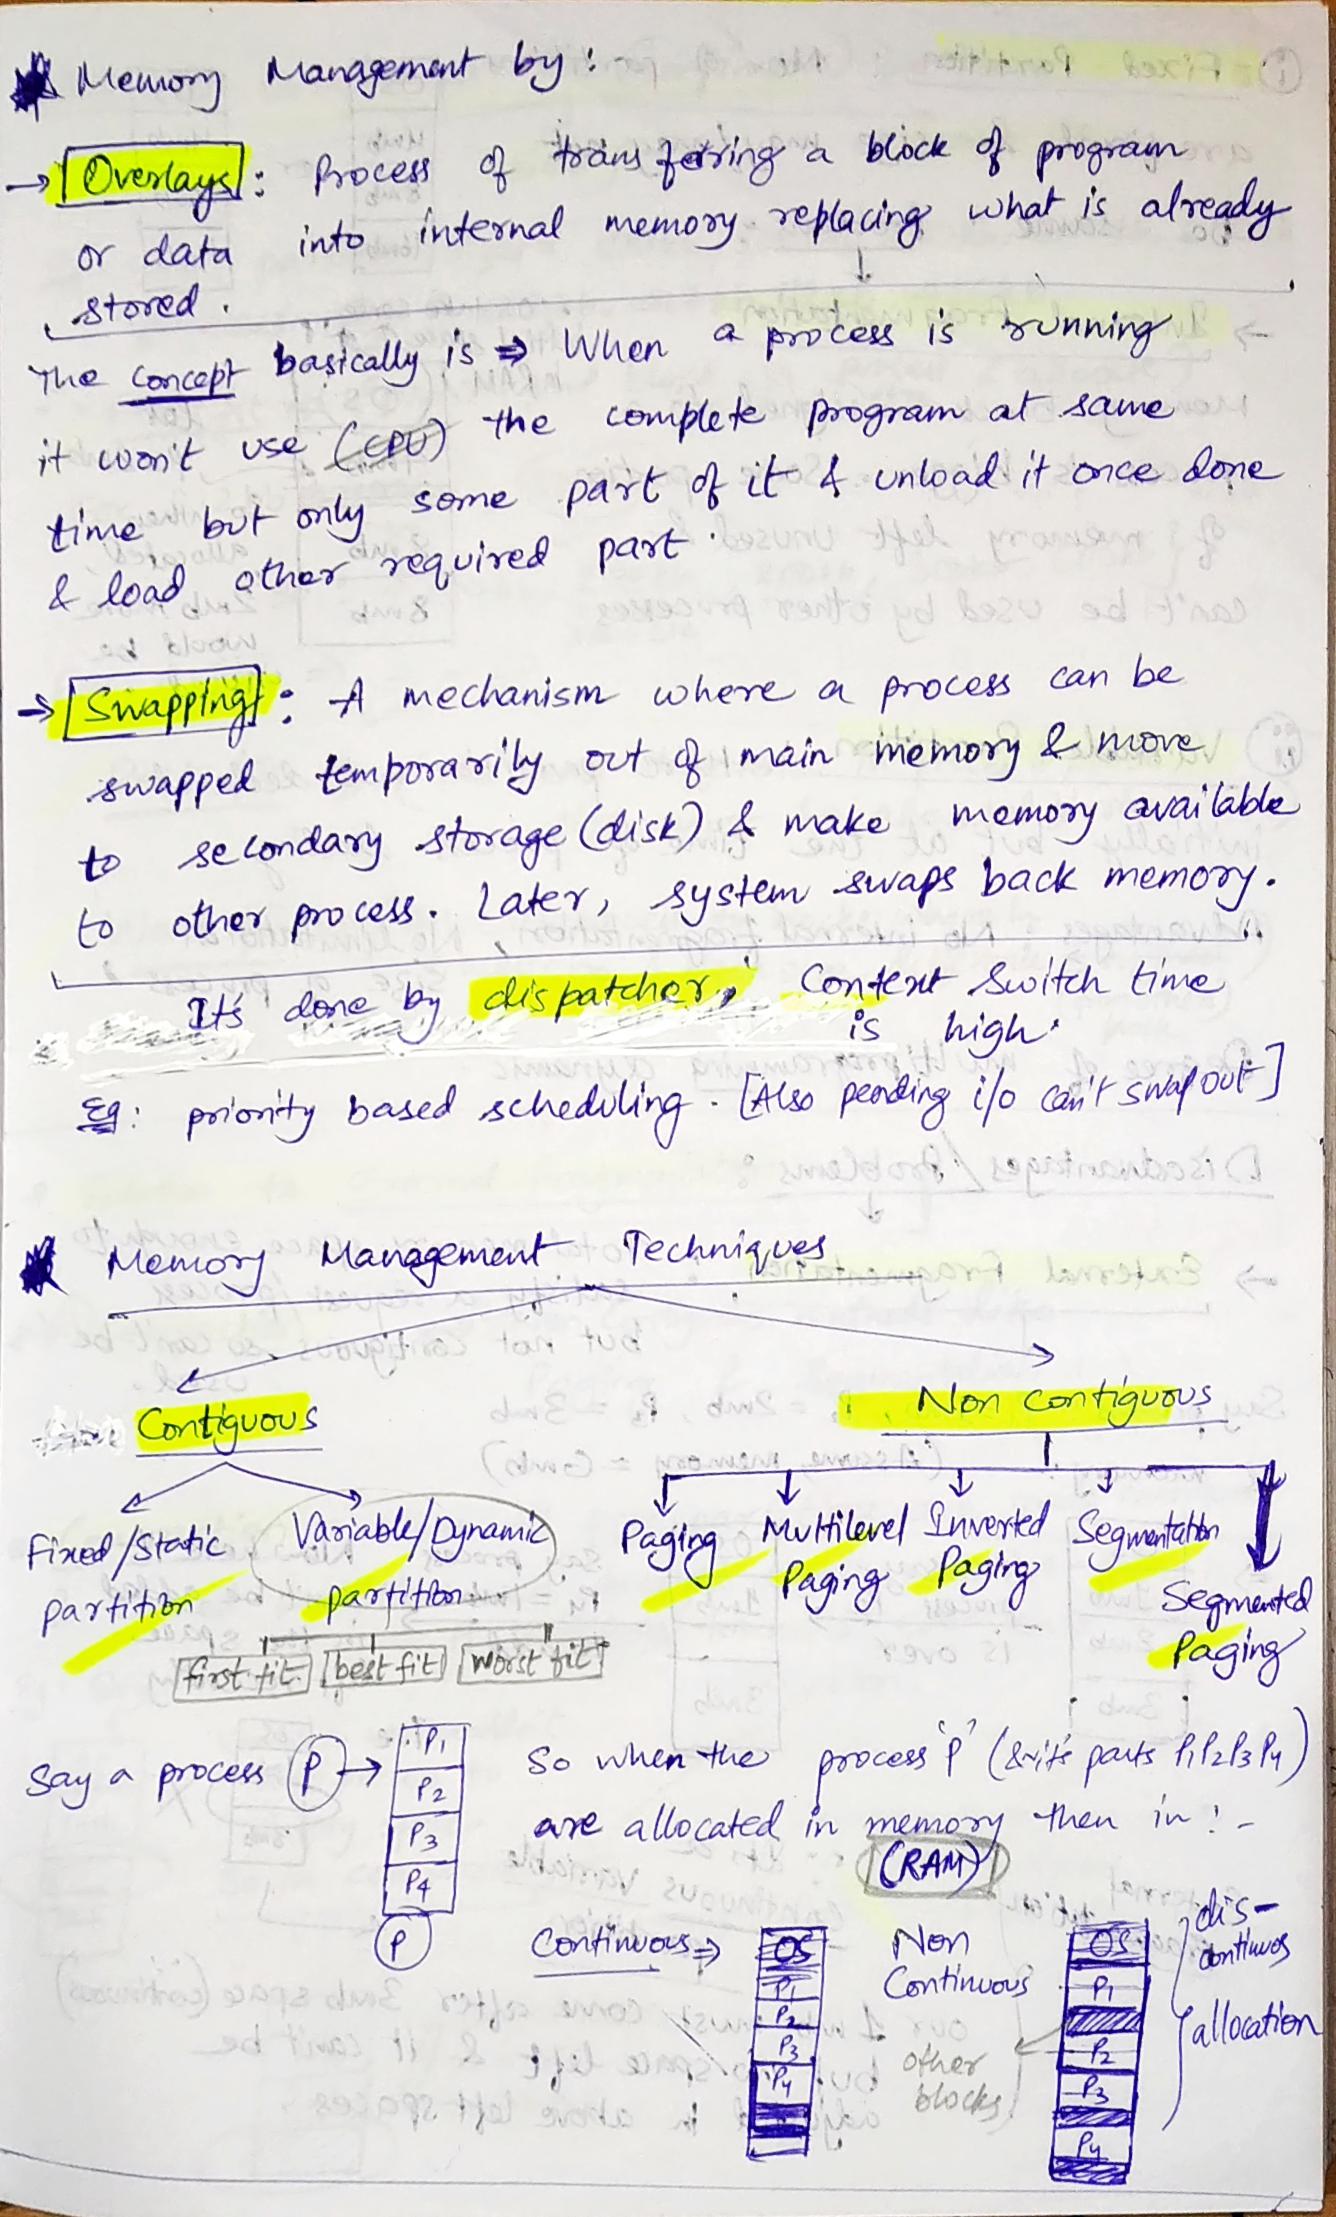 Memory Management by:
→ Overlays : Process of transfering a block of program
or data into internal memory replacing what is already
stored.
The concept basically is ⇒ When a process is running
it won't use (CPU) the complete program at same
time but only some part of it & unload it once done
& load other required part.
→ Swapping : A mechanism where a process can be
swapped temporarily out of main memory & move
to secondary storage (disk) & make memory available
to other process. Later, system swaps back memory.
It's done by dispatcher, Context Switch time
is high.
Eg: priority based scheduling. [Also pending i/o can't swap out]
Memory Management Techniques
Contiguous
Non contiguous
Fixed/Static
partition
Variable/Dynamic
partition
first fit best fit worst fit
Paging
Multilevel
Paging
Inverted
Paging
Segmentation
Segmented
Paging
Say a process P →
P1
P2
P3
P4
P
So when the process 'P' (& it's parts P1 P2 P3 P4)
are allocated in memory then in :-
(RAM)
Continuous ⇒
OS
P1
P2
P3
P4
Non
Continuous
other
blocks
OS
P1
P2
P3
P4
dis-
continuos
allocation